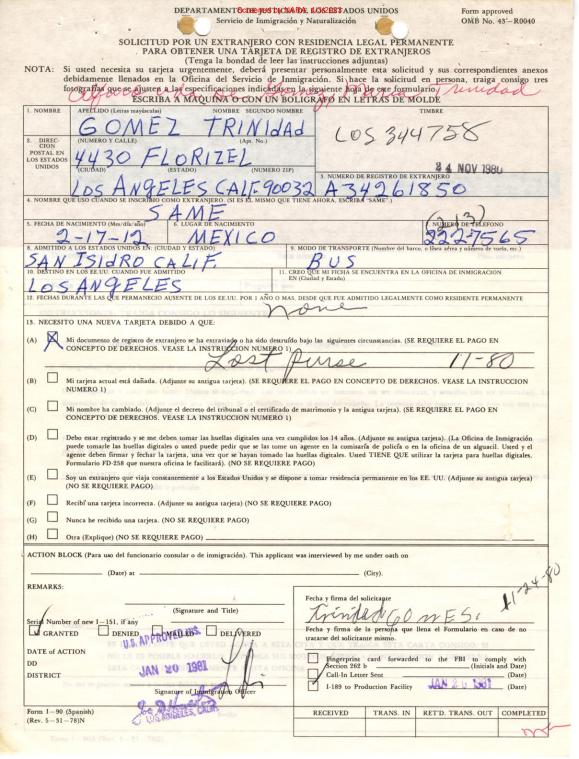 DEPARTAMENTO DE JUSTICIA DE LOS ESTADOS UNIDOS
Servicio de Inmigración y Naturalización
Form approved
OMB No. 43-R0040
SOLICITUD POR UN EXTRANJERO CON RESIDENCIA LEGAL PERMANENTE
PARA OBTENER UNA TARJETA DE REGISTRO DE EXTRANJEROS
(Tenga la bondad de leer las instrucciones adjuntas)
NOTA: Si usted necesita su tarjeta urgentemente, deberá presentar personalmente esta solicitud y sus correspondientes anexos
debidamente llenados en la Oficina del Servicio de Inmigración. Si hace la solicitud en persona, traiga consigo tres
fotografías que se ajusten a las especificaciones indicadas en la siguiente hoja de este formulario.
Trinidad
ESCRIBA A MAQUINA O CON UN BOLIGRAFO EN LETRAS DE MOLDE
1. NOMBRE APELLIDO (Letras mayúsculas) NOMBRE SEGUNDO NOMBRE TIMBRE
GOMEZ TRINIDAD
LOS 344758
2. DIRECCION POSTAL EN LOS ESTADOS UNIDOS
(NUMERO Y CALLE) (Apt. No.)
4430 FLORIZEL
24 NOV 1980
(CIUDAD) (ESTADO) (NUMERO ZIP) 3. NUMERO DE REGISTRO DE EXTRANJERO
LOS ANGELES CALF. 90032 A34261850
4. NOMBRE QUE USO CUANDO SE INSCRIBIO COMO EXTRANJERO. (SI ES EL MISMO QUE TIENE AHORA, ESCRIBA "SAME".)
SAME
(213)
5. FECHA DE NACIMIENTO (Mes/día/año) 6. LUGAR DE NACIMIENTO 7. NUMERO DE TELEFONO
2-17-12 MEXICO 2227565
8. ADMITIDO A LOS ESTADOS UNIDOS EN: (CIUDAD Y ESTADO) 9. MODO DE TRANSPORTE (Nombre del barco, o línea aérea y número de vuelo, etc.)
SAN ISIDRO CALIF. BUS
10. DESTINO EN LOS EE.UU. CUANDO FUE ADMITIDO 11. CREO QUE MI FICHA SE ENCUENTRA EN LA OFICINA DE INMIGRACION
EN (Ciudad y Estado)
LOS ANGELES
12. FECHAS DURANTE LAS QUE PERMANECIO AUSENTE DE LOS EE.UU. POR 1 AÑO O MAS, DESDE QUE FUE ADMITIDO LEGALMENTE COMO RESIDENTE PERMANENTE
none
13. NECESITO UNA NUEVA TARJETA DEBIDO A QUE:
(A) X Mi documento de registro de extranjero se ha extraviado o ha sido destruído bajo las siguientes circunstancias. (SE REQUIERE EL PAGO EN
CONCEPTO DE DERECHOS. VEASE LA INSTRUCCION NUMERO 1)
Lost Purse 11-80
(B) Mi tarjeta actual está dañada. (Adjunte su antigua tarjeta). (SE REQUIERE EL PAGO EN CONCEPTO DE DERECHOS. VEASE LA INSTRUCCION
NUMERO 1)
(C) Mi nombre ha cambiado. (Adjunte el decreto del tribunal o el certificado de matrimonio y la antigua tarjeta). (SE REQUIERE EL PAGO EN
CONCEPTO DE DERECHOS. VEASE LA INSTRUCCION NUMERO 1)
(D) Debo estar registrado y se me deben tomar las huellas digitales una vez cumplidos los 14 años. (Adjunte su antigua tarjeta). (La Oficina de Inmigración
puede tomarle las huellas digitales o usted puede pedir que se las tome un agente en la comisaría de policía o en la oficina de un alguacil. Usted y el
agente deben firmar y fechar la tarjeta, una vez que se hayan tomado las huellas digitales. Usted TIENE QUE utilizar la tarjeta para huellas digitales,
Formulario FD-258 que nuestra oficina le facilitará). (NO SE REQUIERE PAGO)
(E) Soy un extranjero que viaja constantemente a los Estados Unidos y se dispone a tomar residencia permanente en los EE. UU. (Adjunte su antigua tarjeta)
(NO SE REQUIERE PAGO)
(F) Recibí una tarjeta incorrecta. (Adjunte su antigua tarjeta) (NO SE REQUIERE PAGO)
(G) Nunca he recibido una tarjeta. (NO SE REQUIERE PAGO)
(H) Otra (Explique) (NO SE REQUIERE PAGO)
ACTION BLOCK (Para uso del funcionario consular o de inmigración). This applicant was interviewed by me under oath on
(Date) at (City).
REMARKS:
(Signature and Title)
Serial Number of new I-151, if any
GRANTED DENIED MAILED DELIVERED
DATE of ACTION
DD
DISTRICT
JAN 20 1981
Signature of Immigration Officer
LOS ANGELES, CALIF.
Form I-90 (Spanish)
(Rev. 5-31-78)N
Fecha y firma del solicitante
11-24-80
Trinidad GOMES.
Fecha y firma de la persona que llena el Formulario en caso de no
tratarse del solicitante mismo.
Fingerprint card forwarded to the FBI to comply with
Section 262 b (Initials and Date)
Call-In Letter Sent (Date)
I-189 to Production Facility JAN 20 1981 (Date)
RECEIVED TRANS. IN RET'D. TRANS. OUT COMPLETED